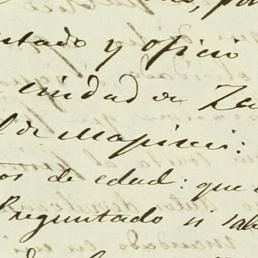 ntado y oficio
ciudad de Za
l de Mapimi:
os de edad: que
Preguntado si sab